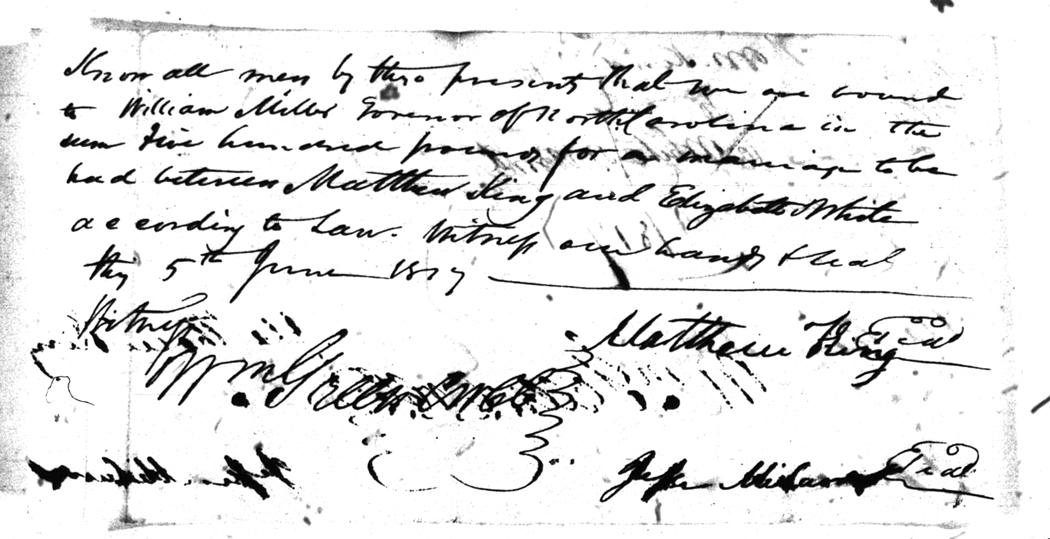 Know all men by these presents that we are bound
to William Miller Governor of North Carolina in the
sum Five hundred pounds for a marriage to be
had between Matthew King and Elizabeth White
according to Law. Witness our hands & Seal
this 5th June 1817
Witness
Matthew King Seal
Wm Green
Seal